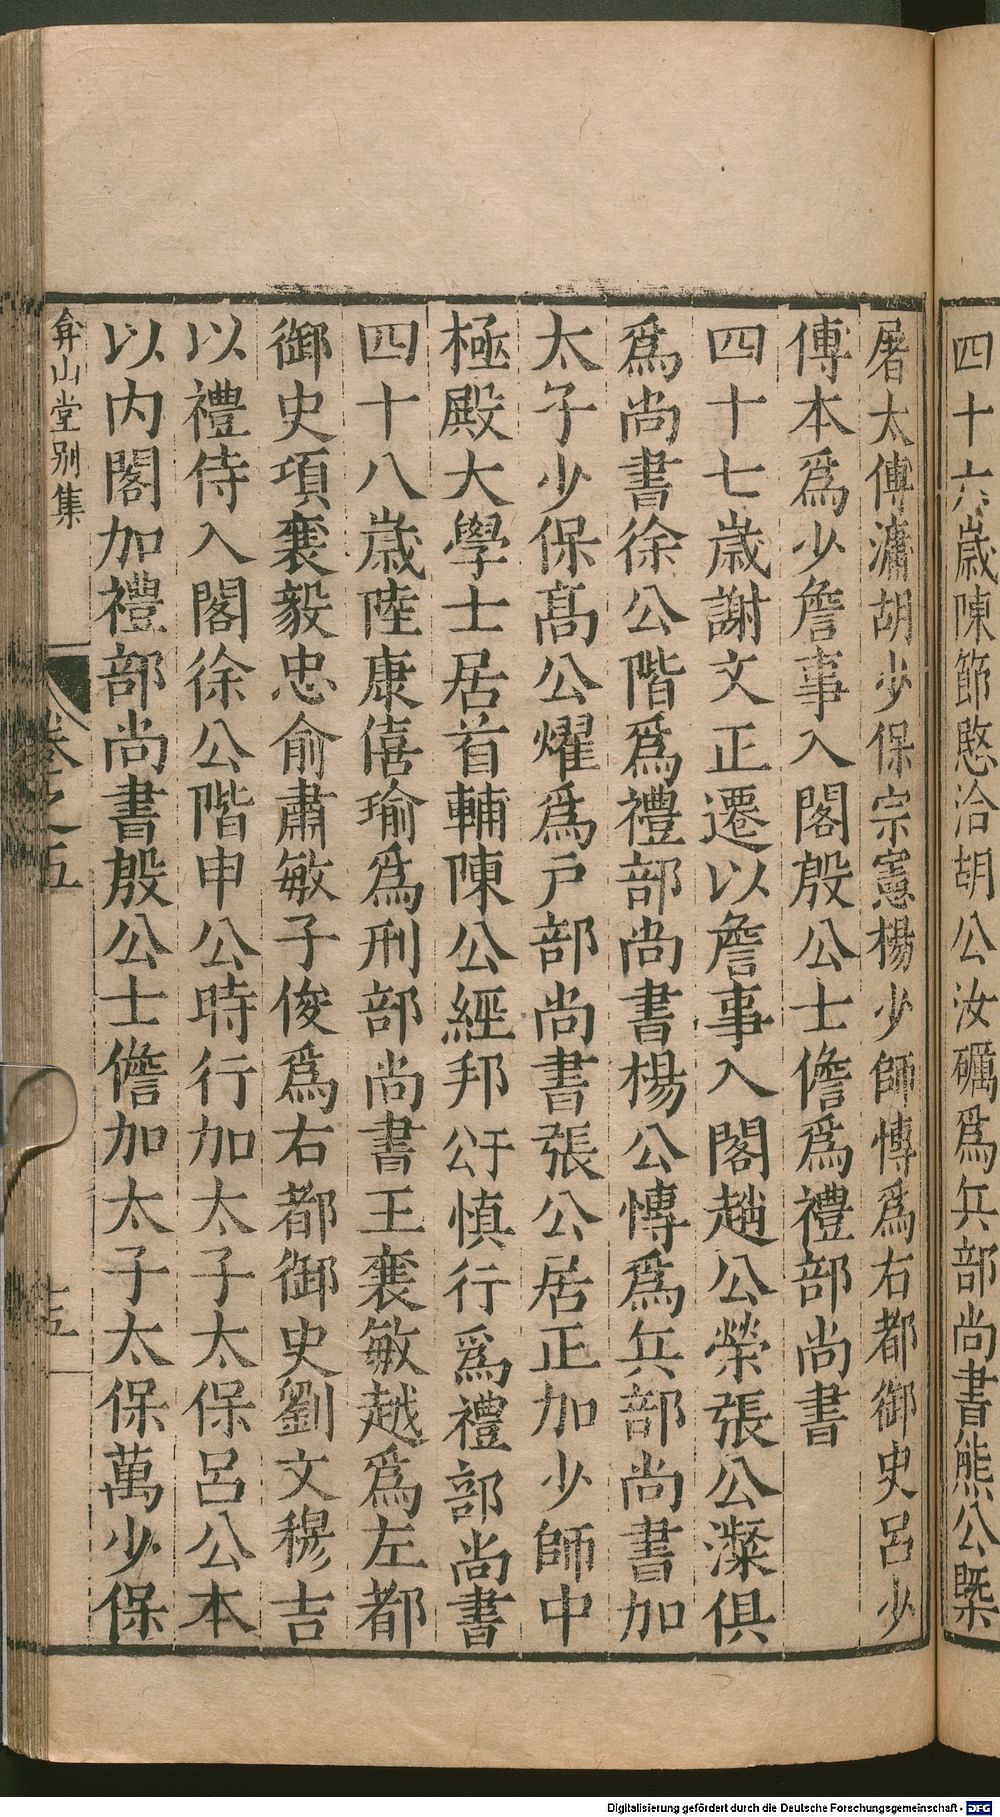 四十六歲陳節愍洽胡公汝礪爲兵部尚書熊公槩
屠太傅滽胡少保宗憲楊少師愽爲右都御史呂少
傅本爲少詹事入閣殷公士儋爲禮部尚書
四十七歲謝文正遷以詹事入閣趙公榮張公瀿俱
爲尚書徐公階爲禮部尚書楊公愽爲兵部尚書加
太子少保髙公燿爲戶部尚書張公居正加少師中
極殿大學士居首輔陳公經邦公于慎行爲禮部尚書
四十八歲陸康僖瑜爲刑部尚書王襄敏越爲左都
御史項襄毅忠俞肅敏子俊爲右都御史劉文穆吉
以禮侍入閣徐公階申公時行加太子太保呂公本
以内閣加禮部尚書殷公士儋加太子太保萬少保
弇山堂别集
卷之五
十五
Digitalisierung gefördert durch die Deutsche Forschungsgemeinschaft - DFG